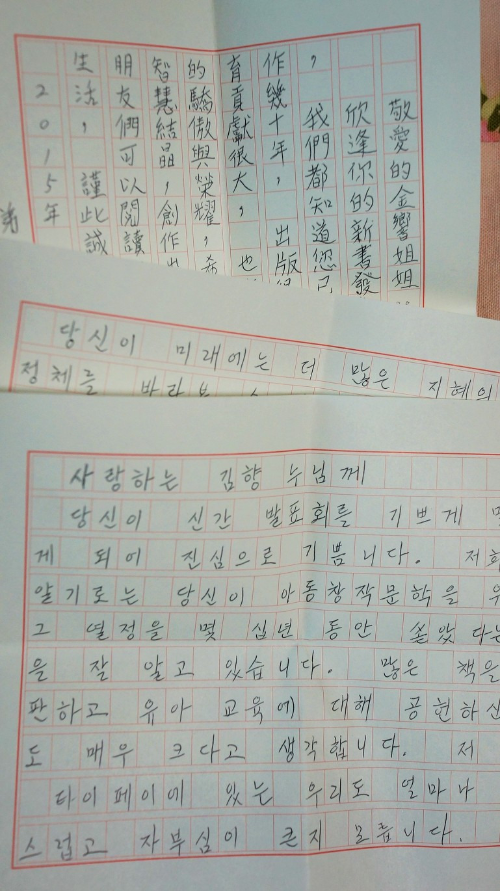 敬愛的金響姐姐
欣逢你的新書發
， 我們都知道您已
作幾十年，出版
育貢獻很大，也
的驕傲與榮耀，希
智慧結晶，創作出
朋友們可以閱讀
生活，謹此誠
2015年
弟
당신이 미래에는 더 많은 지혜의
정체를 바라보
사랑하는 김향 누님께
당신이 신간 발표회를 기쁘게
게 되어 진심으로 기쁩니다. 저희
알기로는 당신이 아동창작문학을
그 열정을 몇 십년 동안 쏟았다는
을 잘 알고 있습니다. 많은 책을
판하고 유아 교육에 대해 공헌하신
도 매우 크다고 생각합니다. 저
타이페이에 있는 우리도 얼마나
스럽고 자부심이 큰지 모릅니다.